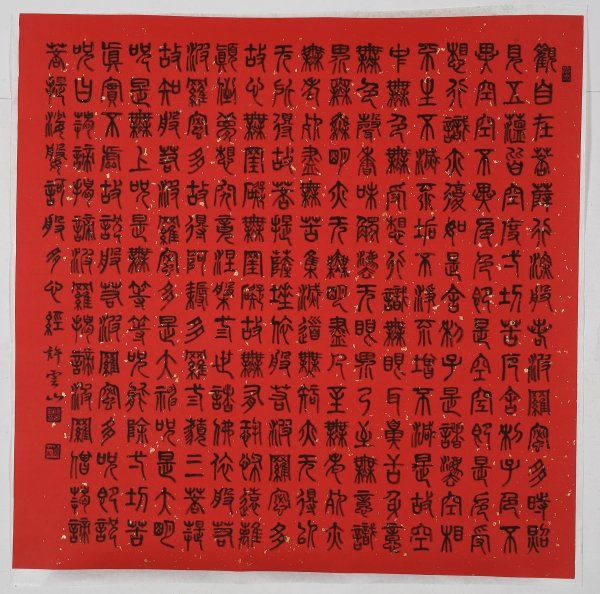 觀自在菩薩行深般若波羅蜜多時照
見五蘊皆空度一切苦厄舍利子色不
異空空不異色色即是空空即是色受
想行識亦復如是舍利子是諸法空相
不生不滅不垢不淨不增不減是故空
中無色無受想行識無眼耳鼻舌身意
無色聲香味觸法无眼界乃至無意識
界無無明亦无無明盡乃至無老死亦
無老死盡無苦集滅道無智亦无得以
无所得故菩提薩埵依般若波羅蜜多
故心無罣礙無罣礙故無有恐怖遠離
顛倒夢想究竟涅槃三世諸佛依般若
波羅蜜多故得阿耨多羅三藐三菩提
故知般若波羅蜜多是大神呪是大明
呪是無上呪是無等等呪能除一切苦
真實不虛故說般若波羅蜜多呪即說
呪曰揭諦揭諦波羅揭諦波羅僧揭諦
菩提娑婆訶般多心經 許雲山